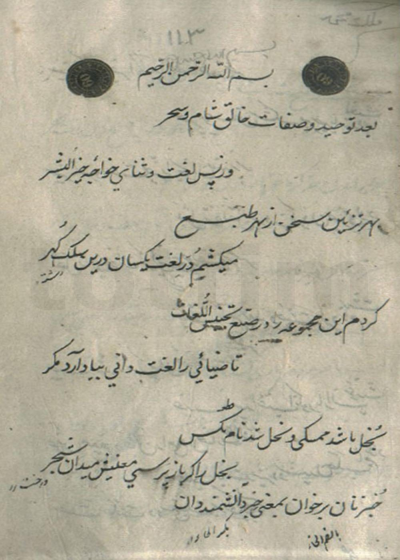 ۱۱۳
بسم الله الرحمن الرحیم
بعد توحید و صفات خالق شام و سحر
وز پس نعت و ثنای خواجه خیر البشر
بهر تزیین سخن از بهر طبع
میکشم در لغت یکسان درین سلک گهر
کردم این مجموعه را در صنع تجنیس اللغات
تا ضیائی را لغت دانی بیاد آرد مگر
بخل باشد ممسکی و نحل شد نام مگس
نخل را گر باز پرسی معنیش میدان شجر
درخت
خبز نان برخوان بمعنی خبر دانشمند دان